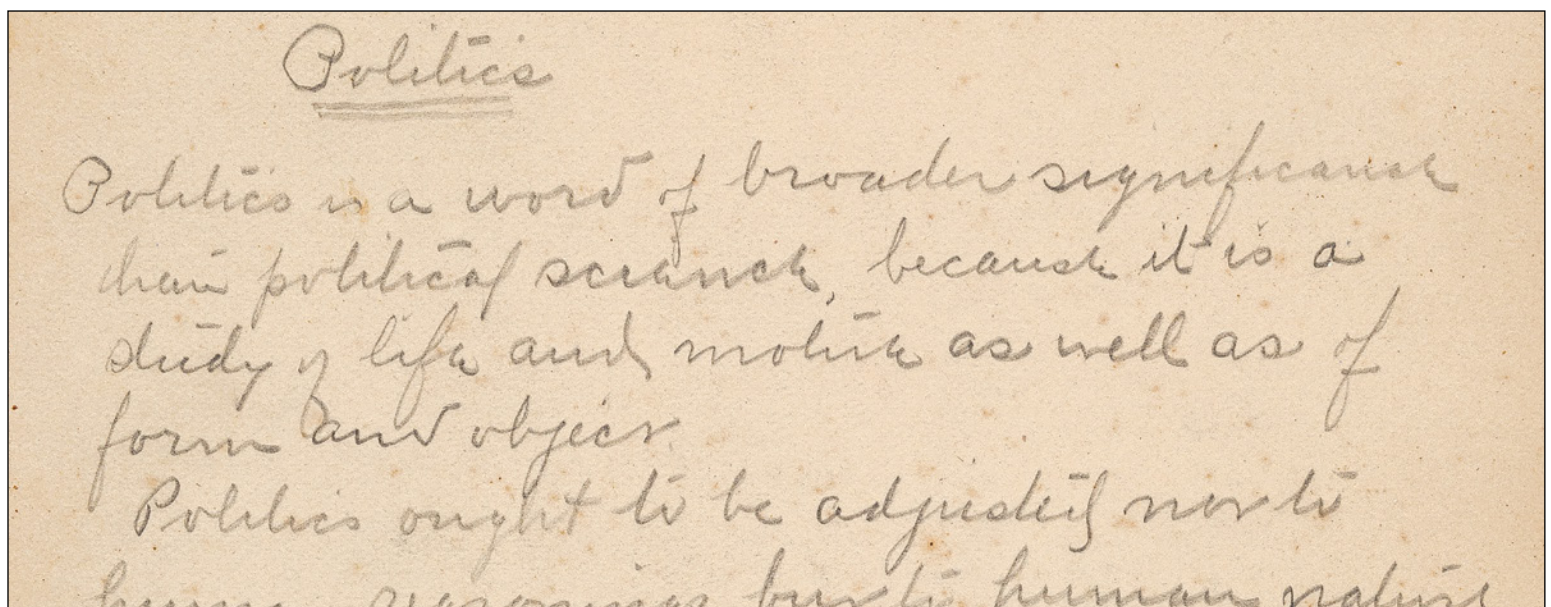 Politics
Politics is a word of broader significance
than political science, because it is a
study of life and motive as well as of
form and object.
Politics ought to be adjusted not to
human reasonings but to human nature